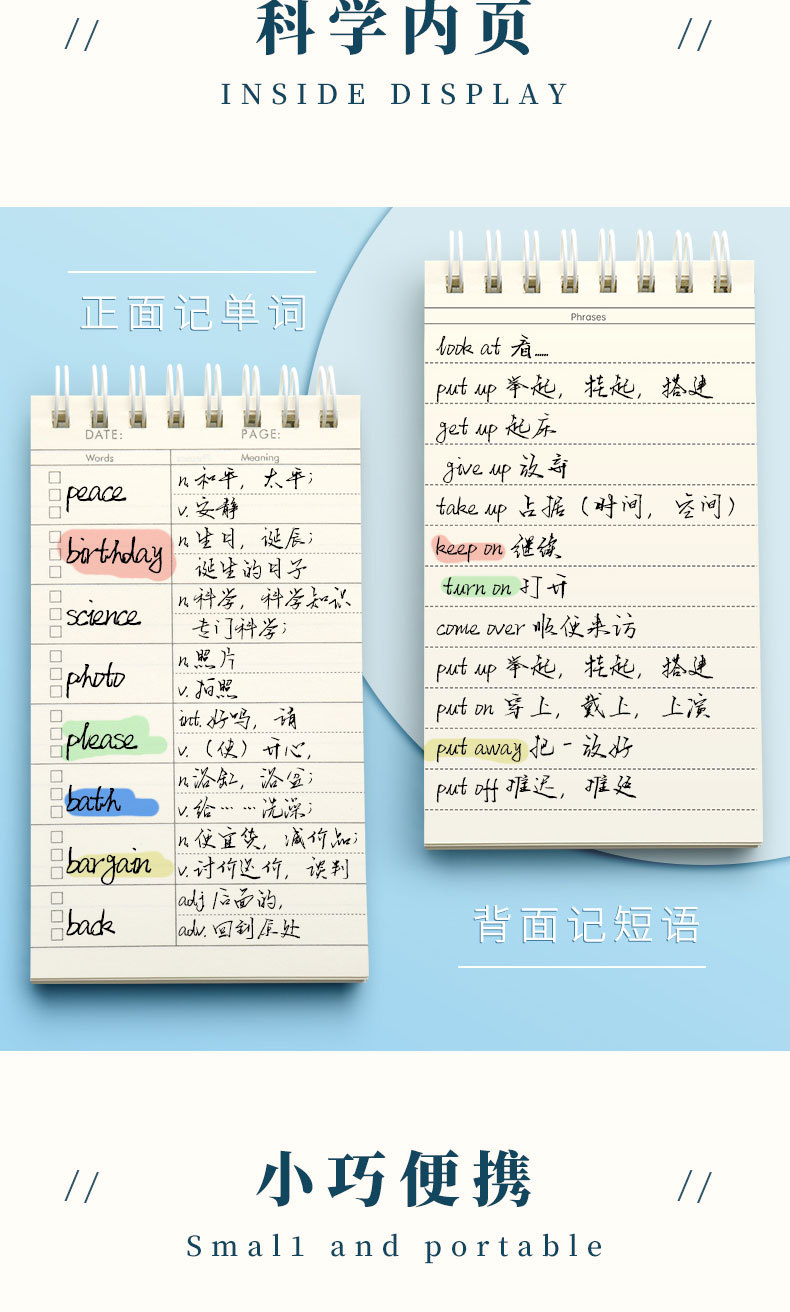 // 科学内页 //
INSIDE DISPLAY
正面记单词
DATE: PAGE:
Words Meaning
peace n.和平，太平；
v.安静
birthday n.生日，诞辰；
诞生的日子
science n.科学，科学知识
专门科学；
photo n.照片
v.拍照
please int.好吗，请
v.（使）开心，
bath n.浴缸，浴室；
v.给……洗澡；
bargain n.便宜货，减价品；
v.讨价还价，谈判
back adj 后面的，
adv.回到原处
Phrases
look at 看……
put up 举起，挂起，搭建
get up 起床
give up 放弃
take up 占据（时间，空间）
keep on 继续
turn on 打开
come over 顺便来访
put up 举起，挂起，搭建
put on 穿上，戴上，上演
put away 把一放好
put off 推迟，推延
背面记短语
// 小巧便携 //
Smal1 and portable